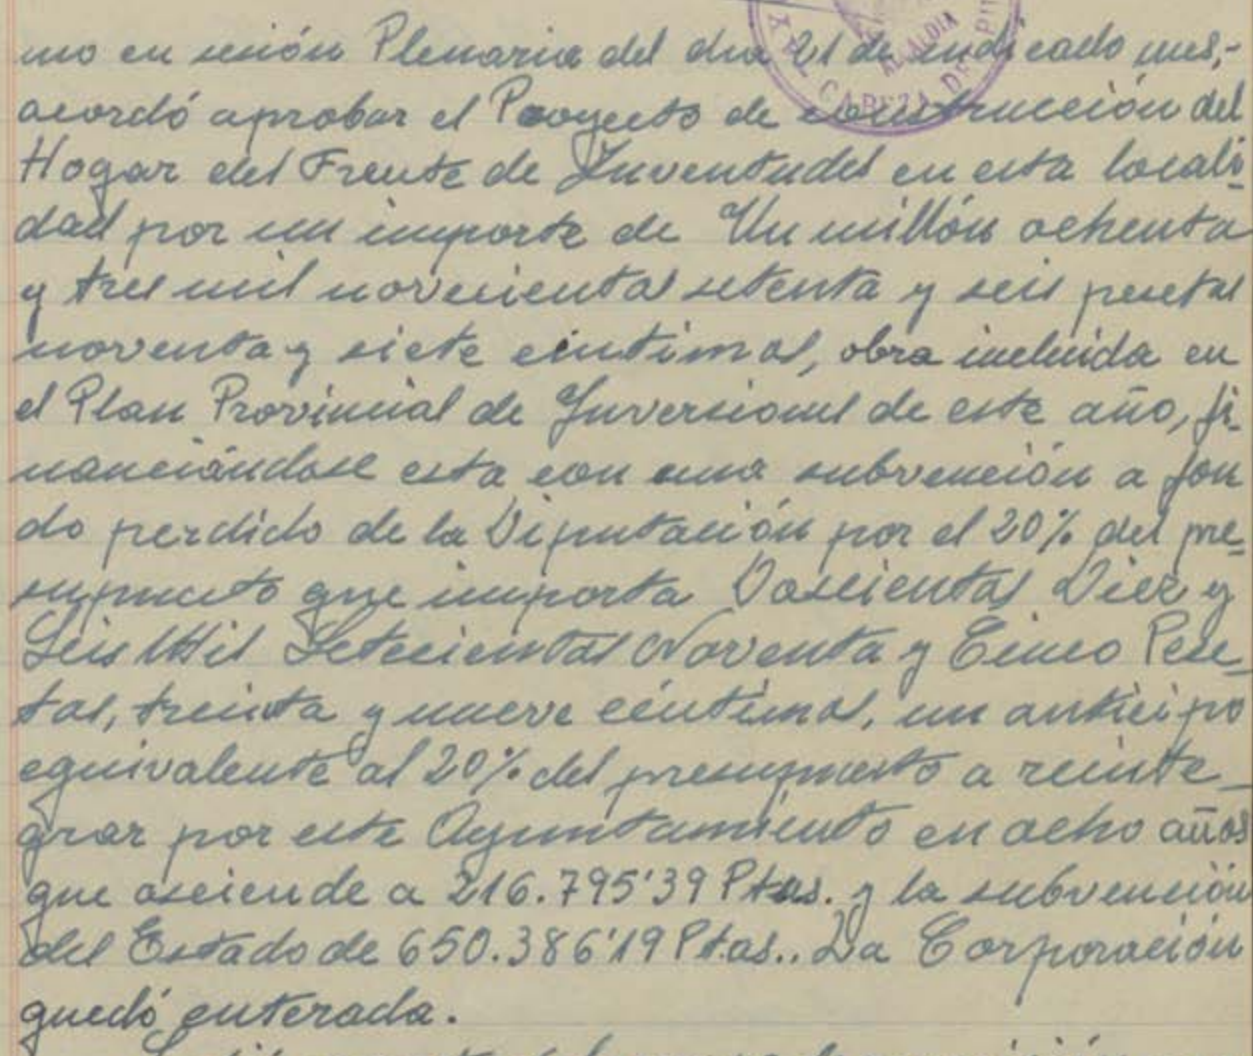 mo en sesión Plenaria del dia 21 de indicado mes,-
acordó aprobar el Proyecto de construcción del
Hogar del Frente de Juventudes en esta locali-
dad por un importe de Un millón ochenta
y tres mil novecientas setenta y seis pesetas
noventa y siete céntimos, obra incluida en
el Plan Provincial de Inversiones de este año, fi-
nanciándose esta con una subvención a fon
do perdido de la Diputación por el 20% del pre-
supuesto que importa Doscientas Diez y
Seis Mil Setecientas Noventa y Cinco Pese-
tas, treinta y nueve céntimos, un anticipo
equivalente al 20% del presupuesto a reinte-
grar por este Ayuntamiento en ocho años
que asciende a 216.795'39 Ptas. y la subvención
del Estado de 650.386'19 Ptas.. La Corporación
quedó enterada.
ALCALDIA
CABEZA DE